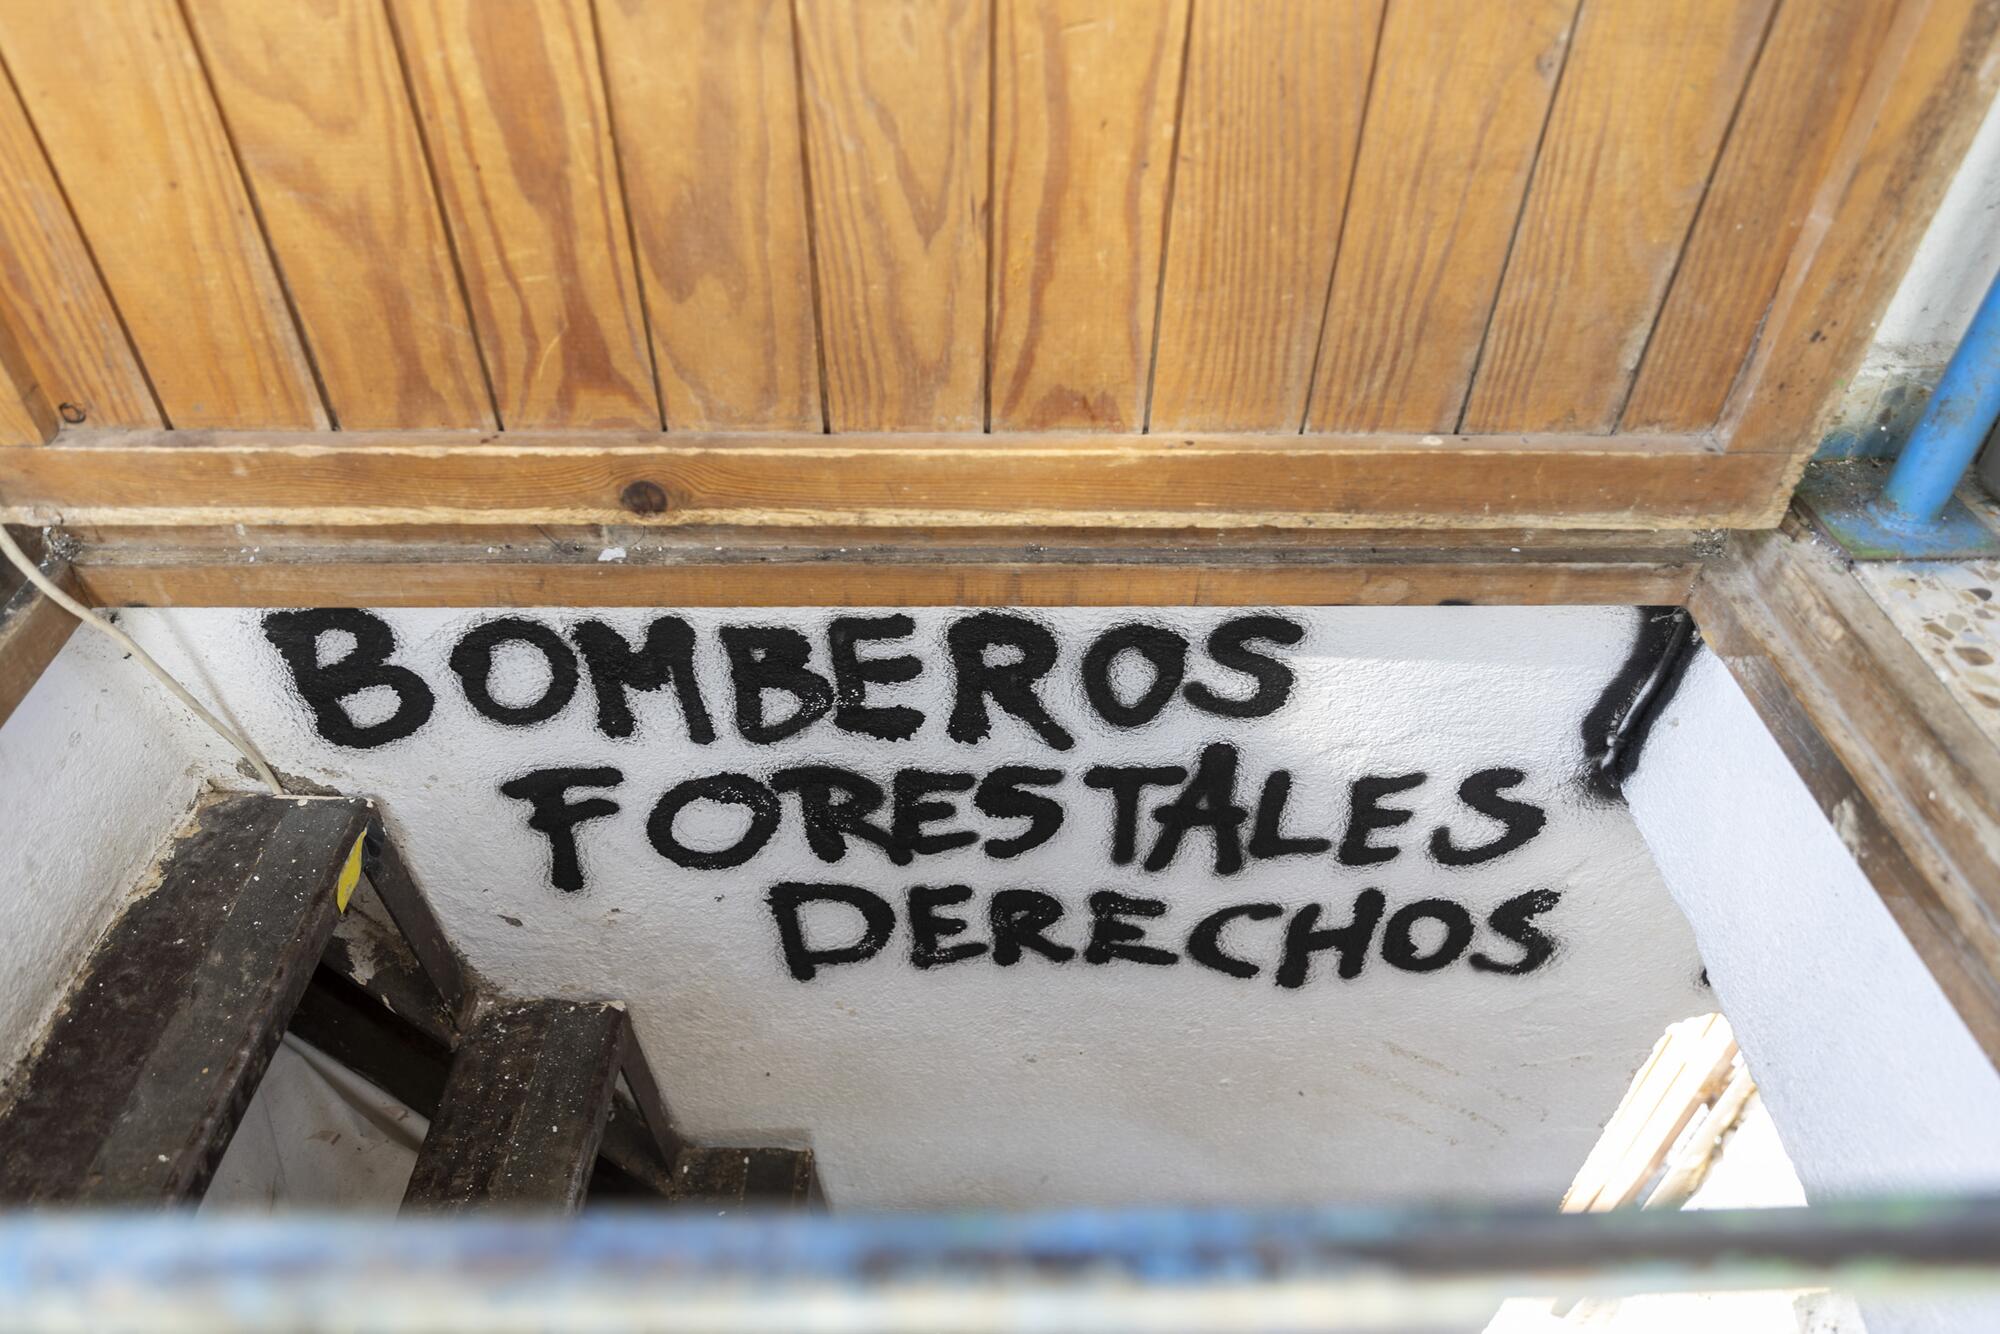 BOMBEROS
FORESTALES
DERECHOS